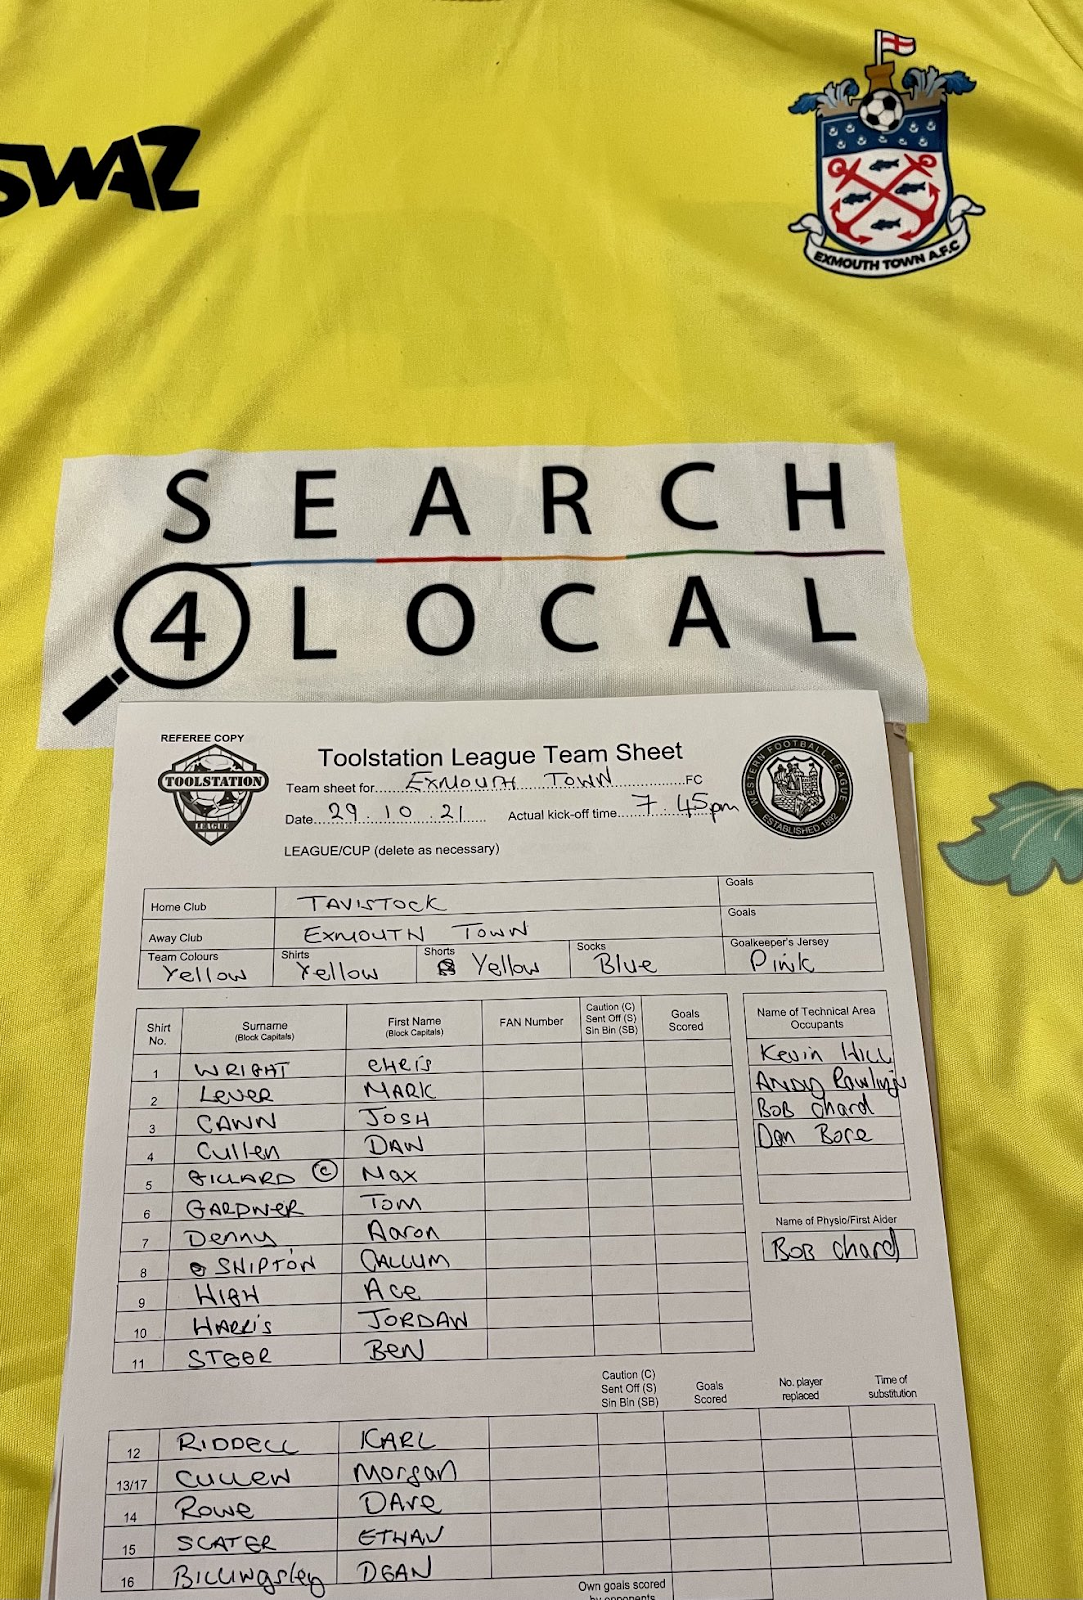 SWAZ
EXMOUTH TOWN A.F.C
SEARCH
4 LOCAL
REFEREE COPY
TOOLSTATION
LEAGUE
Toolstation League Team Sheet
WESTERN FOOTBALL LEAGUE
ESTABLISHED 1892
Team sheet for EXMOUTH TOWN FC
Date 29.10.21 Actual kick-off time 7.45pm
LEAGUE/CUP (delete as necessary)
Home Club TAVISTOCK Goals
Away Club EXMOUTH TOWN Goals
Team Colours Yellow Shirts Yellow Shorts Yellow Socks Blue Goalkeeper's Jersey Pink
Shirt No. Surname (Block Capitals) First Name (Block Capitals) FAN Number Caution (C) Sent Off (S) Sin Bin (SB) Goals Scored
1 WRIGHT CHRIS
2 Lever MARK
3 CANN JOSH
4 Cullen DAN
5 GILLARD C Max
6 GARDNER Tom
7 Denny Aaron
8 SHIPTON CALLUM
9 HIGH Ace
10 HARRIS JORDAN
11 STEER BEN
Name of Technical Area Occupants
Kevin HILL
ANDY Rawlings
BOB chard
Dan Bore
Name of Physio/First Aider
BOB chard
Caution (C) Sent Off (S) Sin Bin (SB) Goals Scored No. player replaced Time of substitution
12 RIDDELL KARL
13/17 CULLEN Morgan
14 Rowe DAve
15 SCATER ETHAN
16 BILLINgsley DEAN
Own goals scored
by opponents